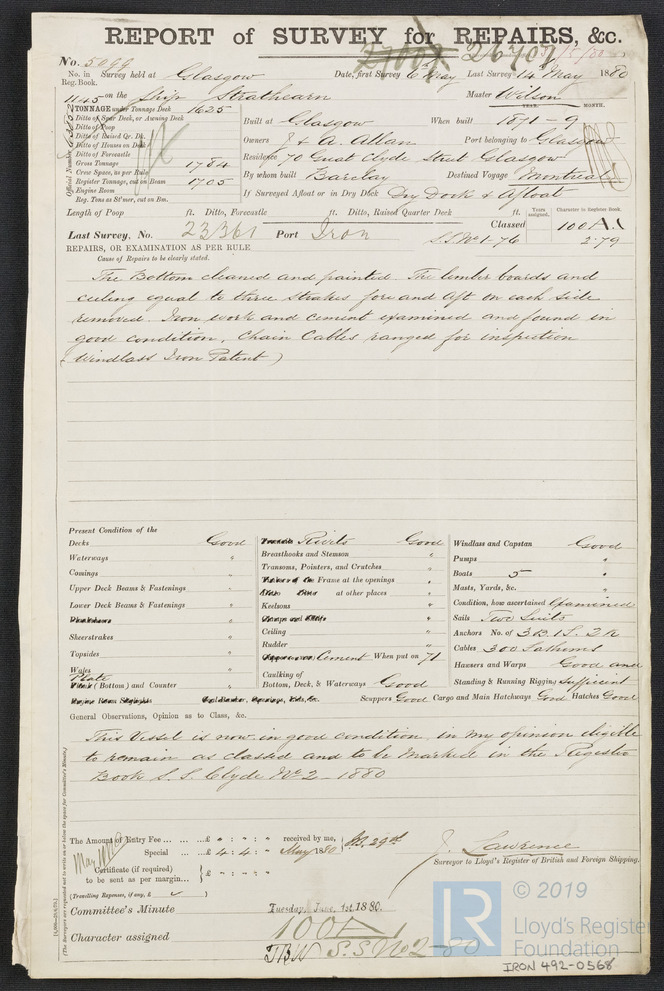 REPORT of SURVEY for REPAIRS, &c.
No. 5099 27002 26709
No. in Reg. Book. Survey held at Glasgow Date, first Survey 6th May Last Survey 14th May 1880
1145 on the Ship Strathearn Master Wilson
TONNAGE under Tonnage Deck 1625 YEAR. MONTH.
Ditto of Spar Deck, or Awning Deck
Ditto of Poop
Ditto of Raised Qr. Dk.
Ditto of Houses on Deck
Ditto of Forecastle
Gross Tonnage 1784
Crew Space, as per Rule
Register Tonnage, cut on Beam 1705
Engine Room
Reg. Tons as St'mer, cut on Bm.
Official Number
Built at Glasgow When built 1871-9
Owners J & A. Allan Port belonging to Glasgow
Residence 70 Great Clyde Street Glasgow
By whom built Barclay Destined Voyage Montreal
If Surveyed Afloat or in Dry Dock Dry Dock & Afloat
Length of Poop ft. Ditto, Forecastle ft. Ditto, Raised Quarter Deck ft. Years assigned. Character in Register Book.
Last Survey, No. 23361 Port Iron Classed 100 A.1
S.S. No 1-76 2.79
REPAIRS, OR EXAMINATION AS PER RULE
Cause of Repairs to be clearly stated.
The Bottom cleaned and painted. The limber boards and
ceiling equal to three strakes fore and aft on each side
removed. Iron work and cement examined and found in
good condition, Chain Cables ranged for inspection
(Windlass Iron Patent)
Present Condition of the
Decks Good
Waterways "
Comings "
Upper Deck Beams & Fastenings "
Lower Deck Beams & Fastenings "
Sheerstrakes "
Topsides "
Wales "
Plate (Bottom) and Counter "
Rivets Good
Breasthooks and Stemson "
Transoms, Pointers, and Crutches "
Frame at the openings "
at other places "
Keelsons "
Ceiling "
Rudder "
Cement When put on 71
Caulking of Bottom, Deck, & Waterways Good
Windlass and Capstan Good
Pumps "
Boats 5 "
Masts, Yards, &c. "
Condition, how ascertained Examined
Sails Two Suits
Anchors No. of 3B. 1S. 2K
Cables 300 Fathoms
Hawsers and Warps Good and
Standing & Running Rigging sufficient
Scuppers Good Cargo and Main Hatchways Good Hatches Good
General Observations, Opinion as to Class, &c.
This Vessel is now in good condition, in my opinion eligible
to remain as classed and to be marked in the Register
Book S.S. Clyde No 2 - 1880
The Amount of Entry Fee ... ...£ " : " : " received by me,
Special ... ...£ 4 : 4 : " May 1880
Certificate (if required) to be sent as per margin... £ " : " : "
(Travelling Expenses, if any, £ )
J. Lawrence
Surveyor to Lloyd's Register of British and Foreign Shipping.
Committee's Minute Tuesday, June 1st, 1880.
Character assigned 100A1
S.S. No 2-80
(The Surveyors are requested not to write on or below the space for Committee's Minute.)
LR
© 2019
Lloyd's Register
Foundation
IRON 492-0568